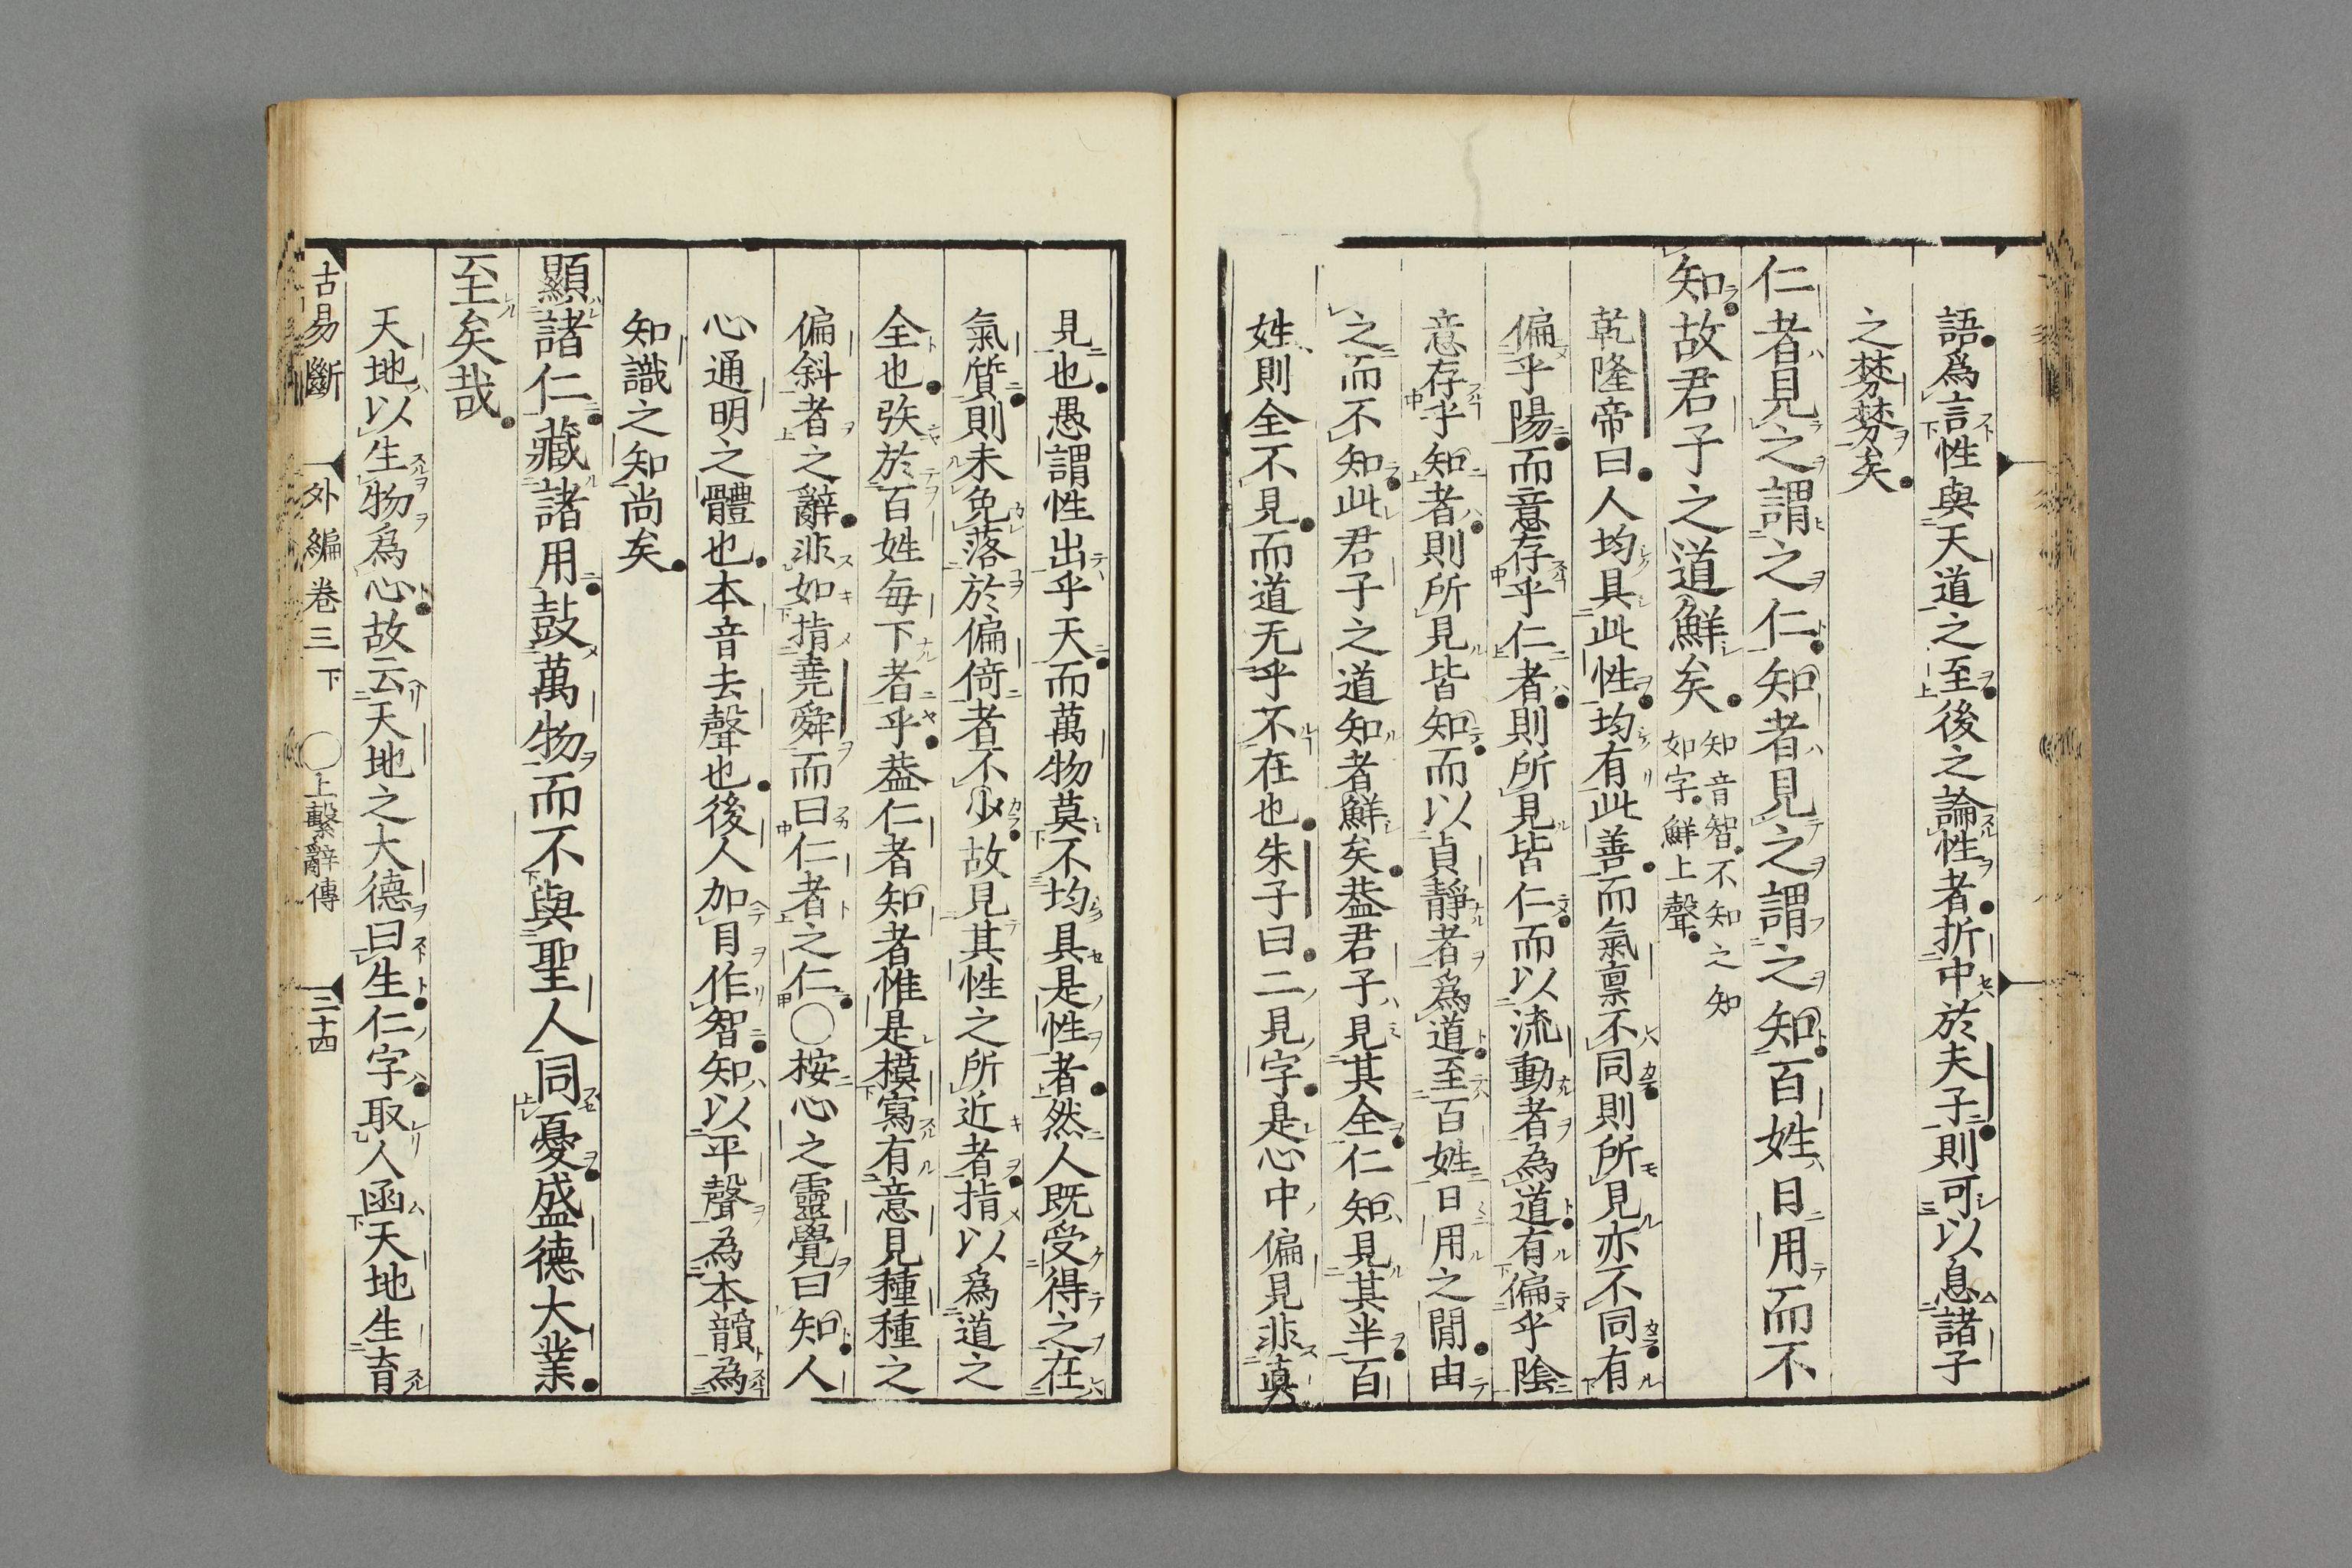 語爲言性與天道之至後之論性者折中於夫子則可以息諸子
之棼棼矣
仁者見之謂之仁知者見之謂之知百姓日用而不
知故君子之道鮮矣
知音智不知之知
如字鮮上聲
乾隆帝曰人均具此性均有此善而氣禀不同則所見亦不同有
偏乎陽而意存乎仁者則所見皆仁而以流動者為道有偏乎陰
意存乎知者則所見皆知而以貞靜者爲道至百姓日用之閒由
之而不知此君子之道知者鮮矣葢君子見其全仁知見其半百
姓則全不見而道无乎不在也朱子曰二見字是心中偏見非真
見也愚謂性出乎天而萬物莫不均具是性者然人既受得之在
氣質則未免落於偏倚者不少故見其性之所近者指以爲道之
全也矧於百姓每下者乎葢仁者知者惟是模寫有意見種種之
偏斜者之辭非如指堯舜而曰仁者之仁〇桉心之靈覺曰知人
心通明之體也本音去聲也後人加日作智知以平聲為本韻為
知識之知尚矣
顯諸仁藏諸用鼓萬物而不與聖人同憂盛德大業
至矣哉
天地以生物爲心故云天地之大德曰生仁字取人函天地生育
古易斷 外編卷三下 〇上繫辭傳 三十四